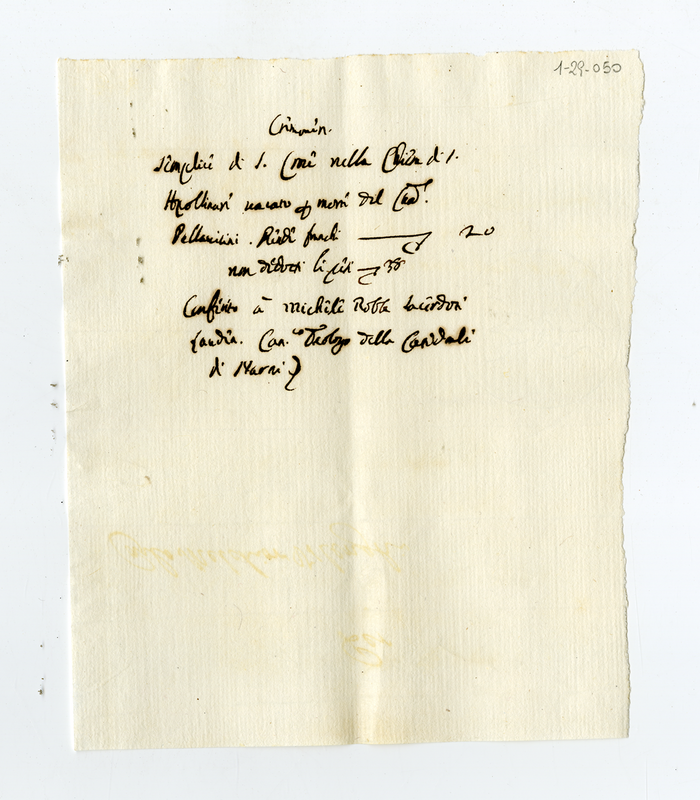 1-29-050
Cremonen.
Semplice di S. nella Chiesa di S.
Apollinari vacato per morte del Card.
Pallavicini. Rende scudi 20
non dedotti li pesi 38
Conferito à Michele Robba sacerdote
Lauden. Can.co Teologo della Catedrale
di Narni